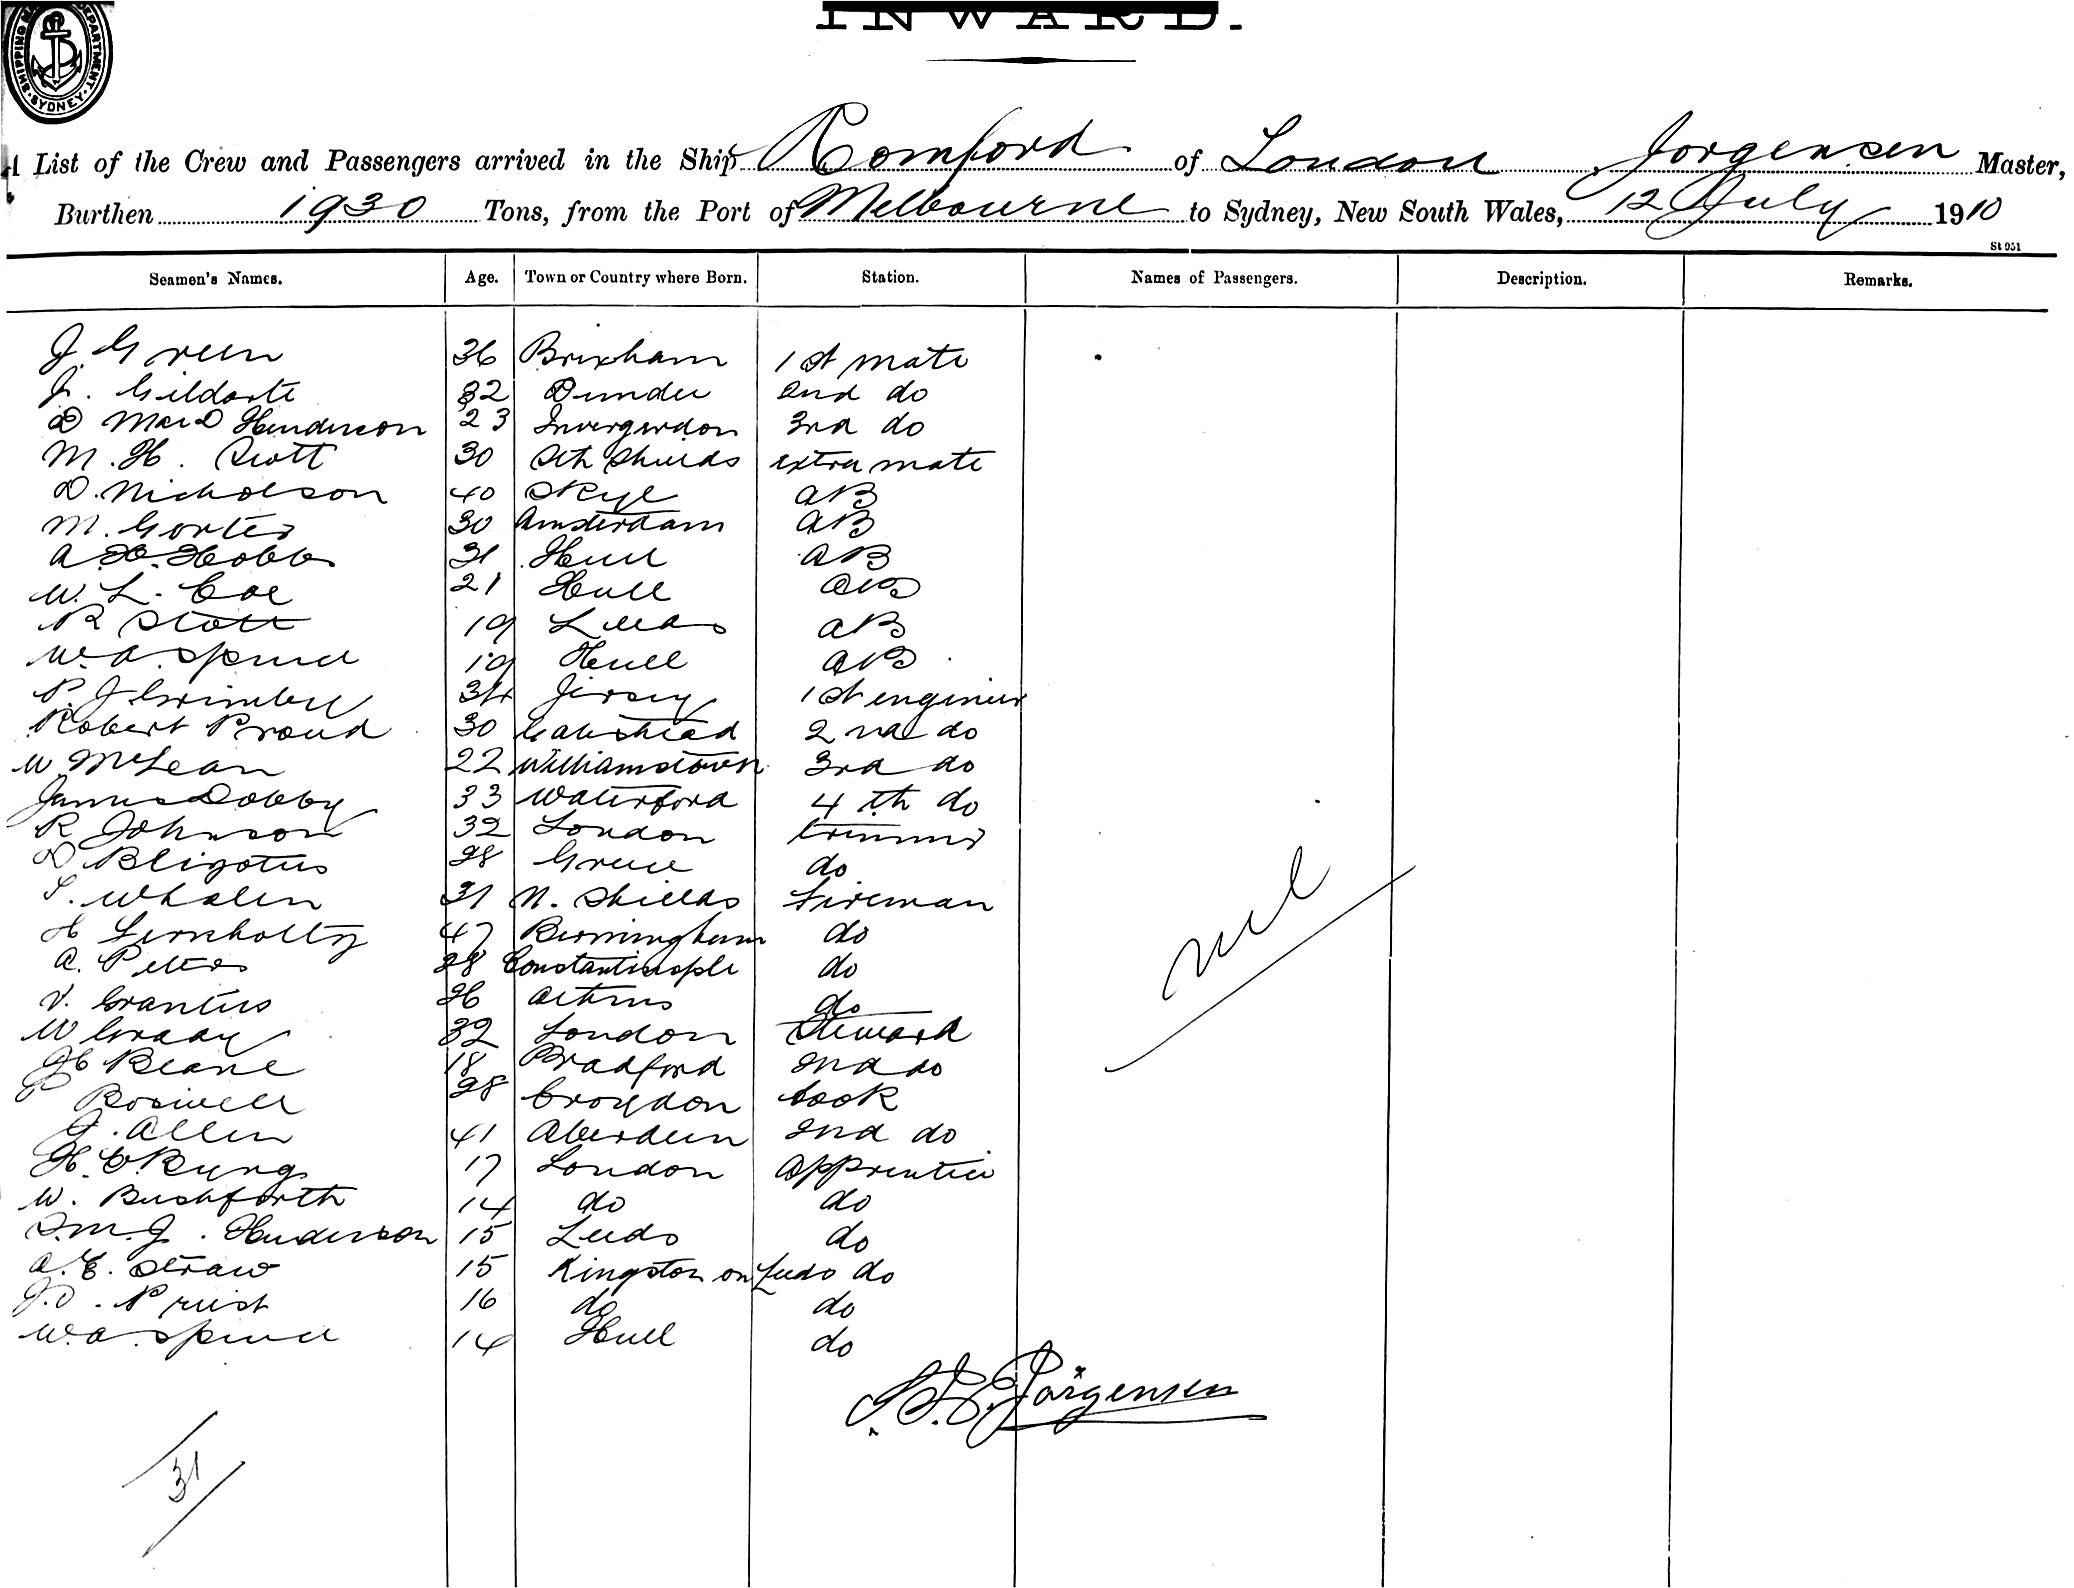 SHIPPING MASTER'S DEPARTMENT SYDNEY
INWARD.
A List of the Crew and Passengers arrived in the Ship Romford of London Jorgensen Master,
Burthen 1930 Tons, from the Port of Melbourne to Sydney, New South Wales, 12 July 1910
St 951
Seamen's Names. Age. Town or Country where Born. Station. Names of Passengers. Description. Remarks.
J. Green 36 Brixham 1st mate
J. Gildarte 32 Dundee 2nd do
D MacD Henderson 23 Invergordon 3rd do
M. H. Scott 30 Sth Shields extra mate
D. Nicholson 40 Skye AB
M. Gorter 30 Amsterdam AB
A H. Hobbs 31 Hull AB
W. L. Coe 21 Hull
R Stott 19 Leeds AB
W. A. 19 Hull AB
P. J Grimley 34 Jersey 1st engineer
Robert Proud 30 Gateshead 2nd do
W McLean 22 Williamstown 3rd do
James Dobby 33 Waterford 4th do
R Johnson 32 London trimmer
D Bligotus 28 Greece do
S. Whalen 31 N. Shields Fireman
H 47 Birmingham do
A. Peters 28 Constantinople do
V. Grantus 26 Athens do
W Grady 32 London Steward
H Beane 18 Bradford 2nd do
Boswell 28 Croydon Cook
J. Allen 41 Aberdeen 2nd do
H. C. 17 London Apprentice
W. Bushforth 14 do do
T. M. J. Henderson 15 Leeds do
A. E. Straw 15 Kingston on do
Priest 16 do do
W. A. 14 Hull do
nil
Jörgensen
31